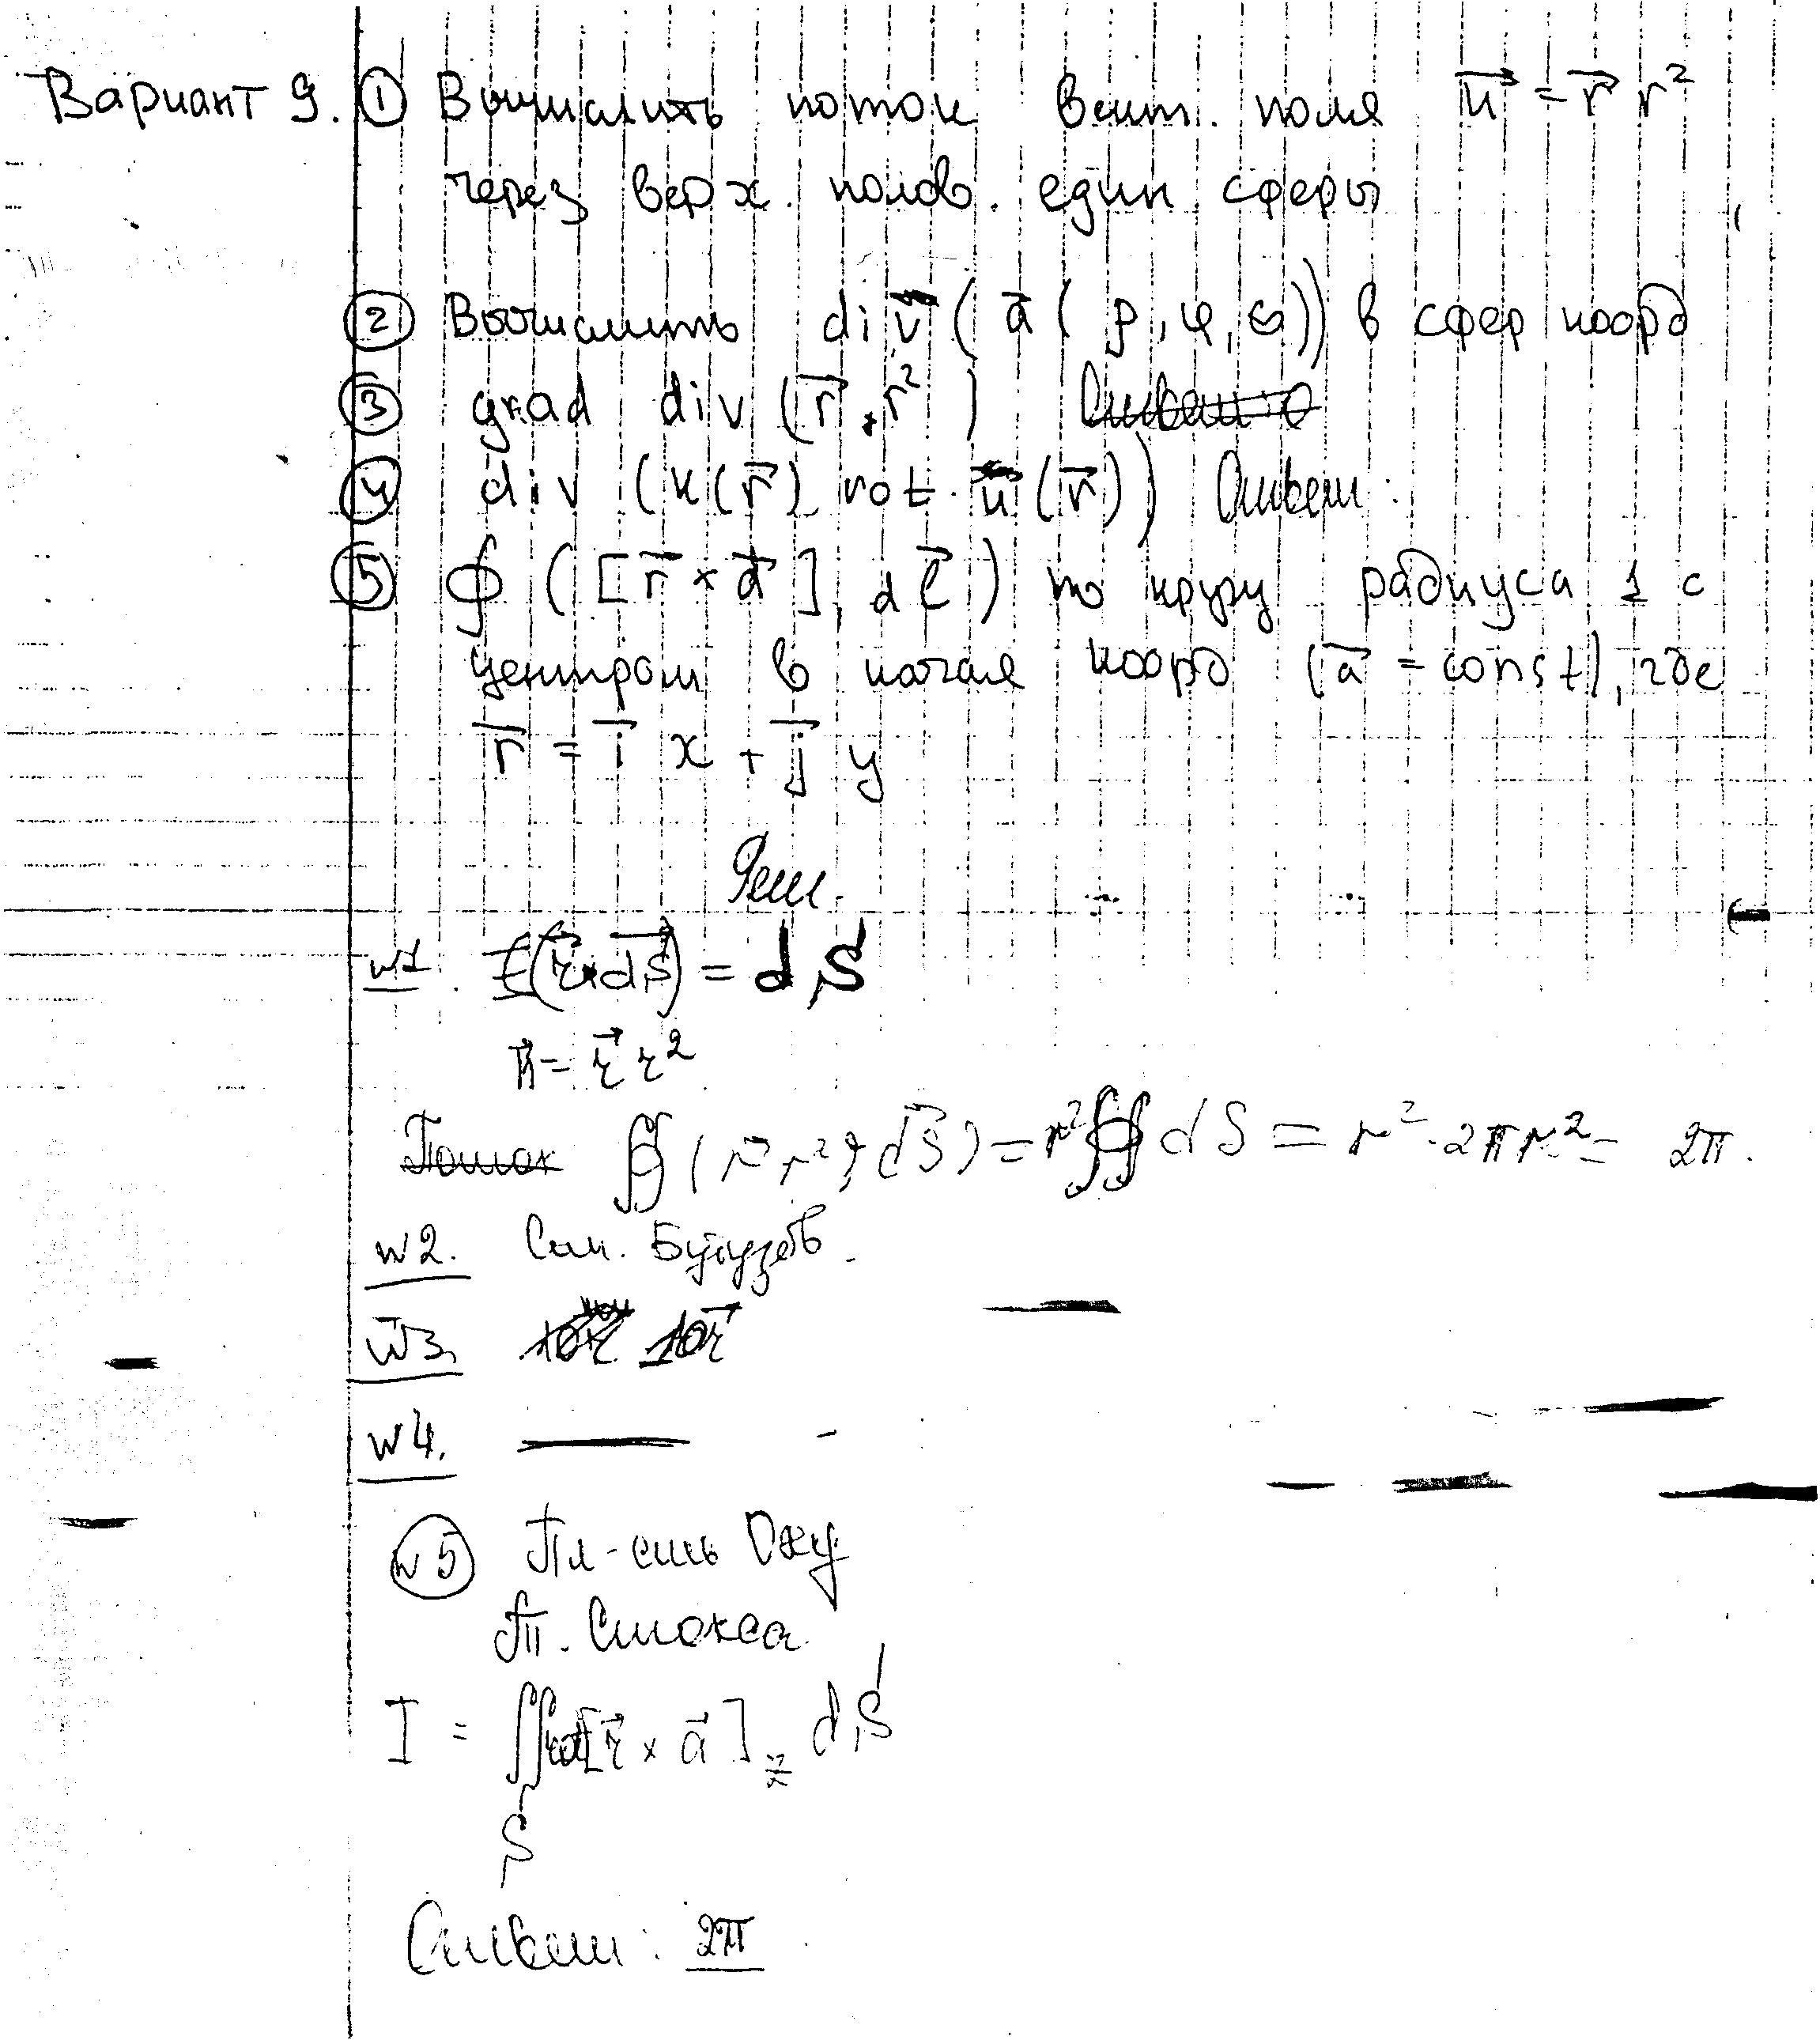 Вариант 9. ① Вычислить поток вект. поля u⃗ = r⃗ r²
через верх. полов. един. сферы
② Вычислить div (a⃗ (ρ, φ, Θ)) в сфер коорд
③ grad div (r⃗ · r²)
④ div (k(r⃗) rot u⃗ (r⃗)) Ответ:
⑤ ∮ ([r⃗ × a⃗], dl⃗) по кругу радиуса 1 с
центром в начале коорд (a⃗ = const), где
r⃗ = i⃗ x + j⃗ y
Реш.
№1. (r⃗ · dS⃗) = dS
n⃗ = r⃗ r²
Поток ∯ (r⃗ r², dS⃗) = r² ∯ dS = r² · 2πr² = 2π.
№2. См.
№3. 10r⃗
№4. —
№5 Пл-сть Oxy
Т. Стокса
I = ∬ rot[r⃗ × a⃗]z dS
S
Ответ: 2π